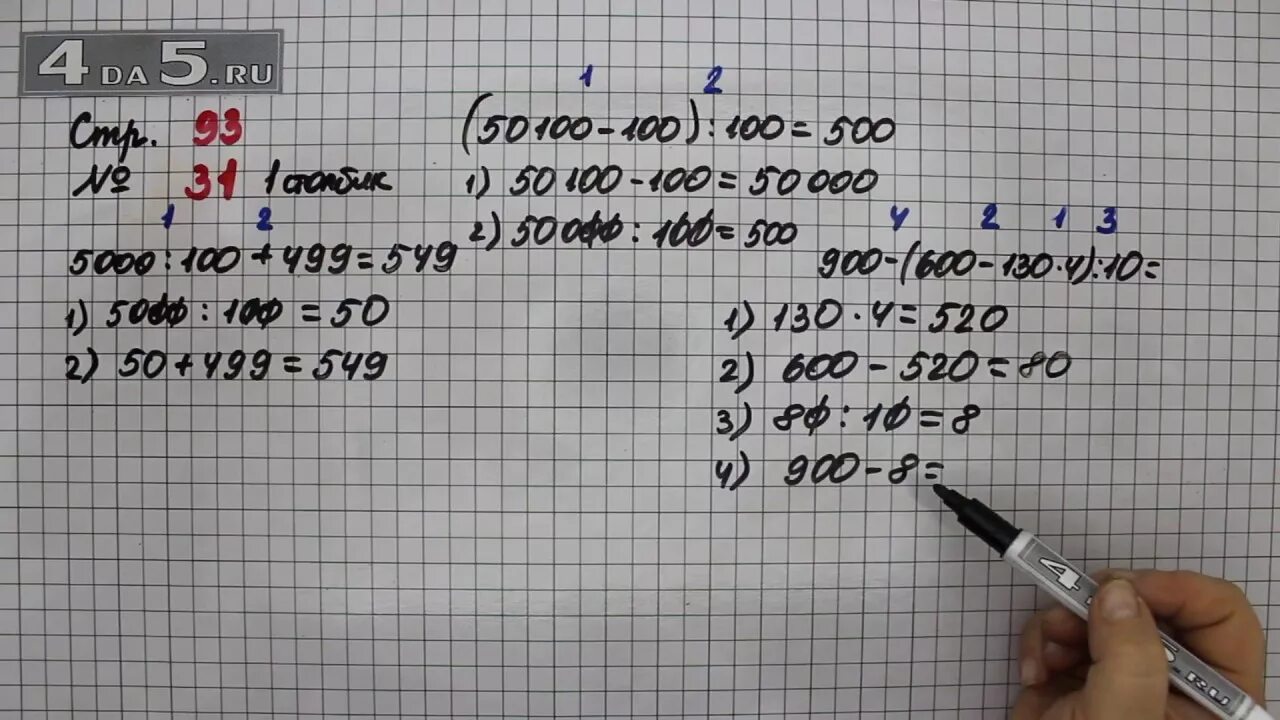 4DA5.RU
Стр. 93
№ 31 1 столбик
1 2
5000:100+499=549
1) 5000:100=50
2) 50+499=549
1 2
(50100-100):100=500
1) 50100-100=50000
2) 50000:100=500
4 2 1 3
900-(600-130·4):10=
1) 130·4=520
2) 600-520=80
3) 80:10=8
4) 900-8=
4
5.RU